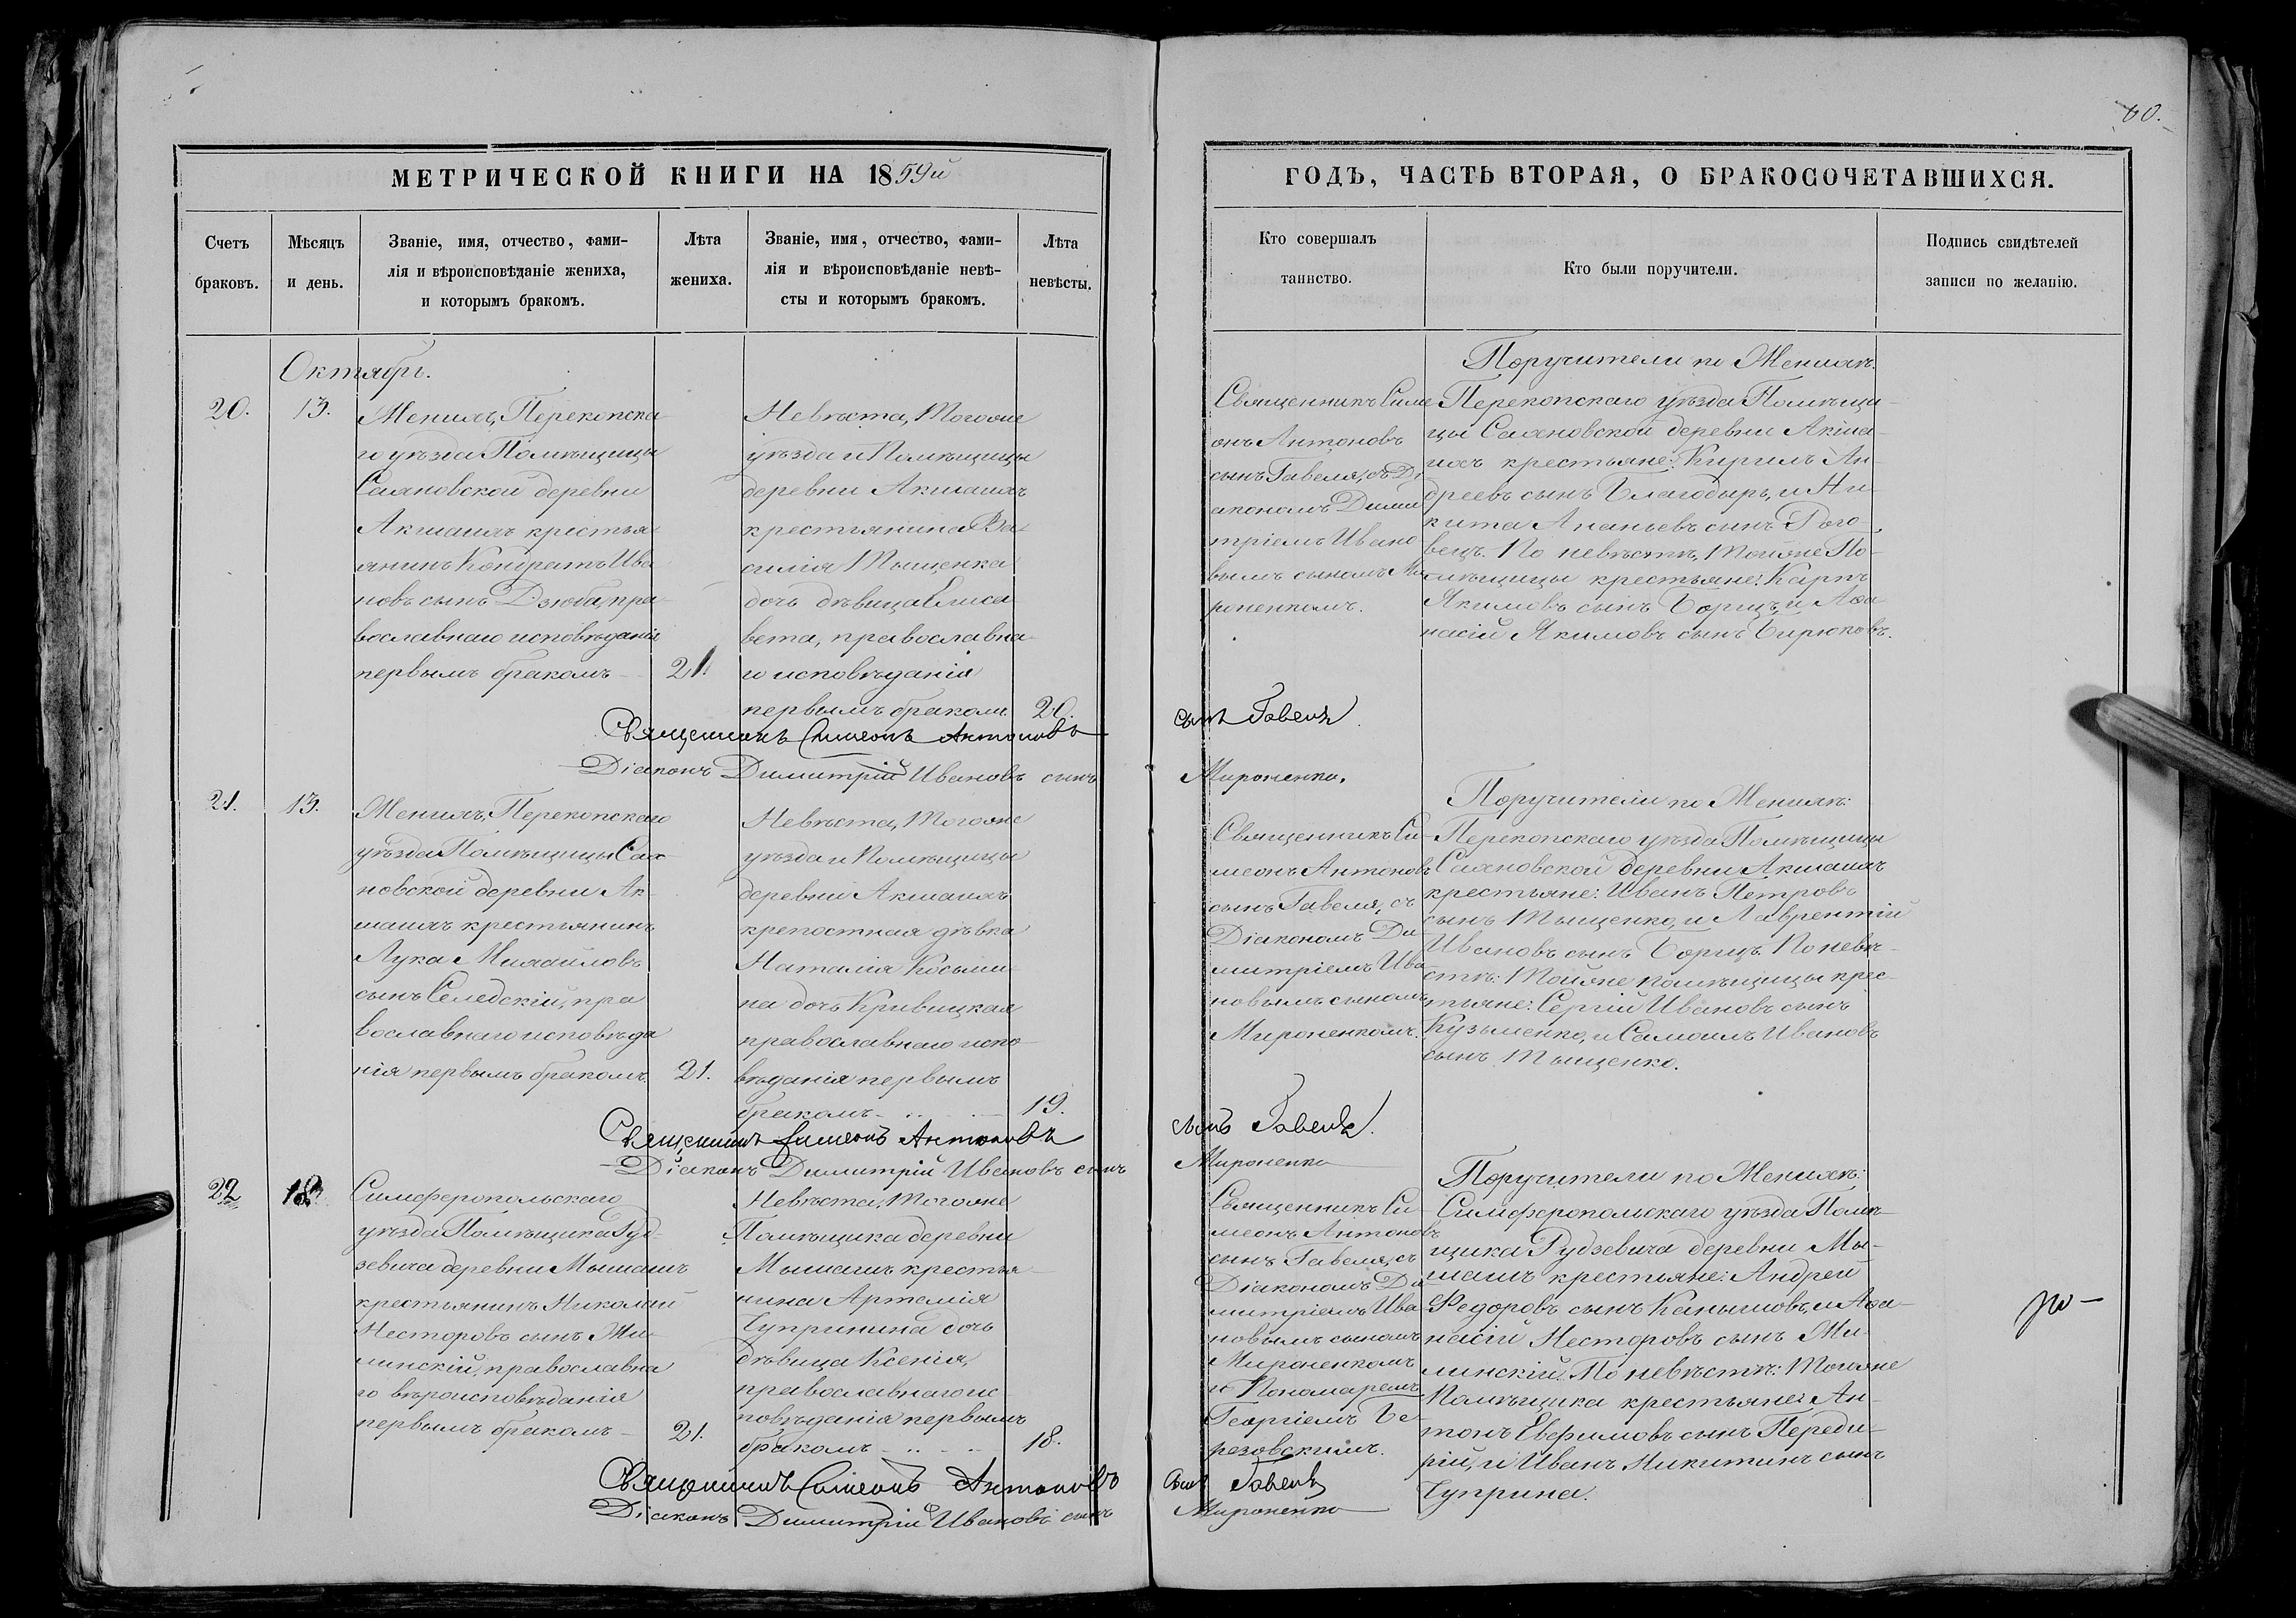 60.
МЕТРИЧЕСКОЙ КНИГИ НА 1859й
ГОДЪ, ЧАСТЬ ВТОРАЯ, О БРАКОСОЧЕТАВШИХСЯ.
Счетъ
браковъ.
Мѣсяцъ
и день.
Званіе, имя, отчество, фами-
лія и вѣроисповѣданіе жениха,
и которымъ бракомъ.
Лѣта
жениха.
Званіе, имя, отчество, фами-
лія и вѣроисповѣданіе невѣ-
сты и которымъ бракомъ.
Лѣта
невѣсты.
Кто совершалъ
таинство.
Кто были поручители.
Подпись свидѣтелей
записи по желанію.
Октябрь.
20.
13.
Женихъ, Перекопска-
го уѣзда Помѣщицы
Саяновской деревни
Акшаихъ крестья-
янинъ Кондратъ Ива-
новъ сынъ Дзюба, пра-
вославнаго исповѣданія
первымъ бракомъ
21.
Невѣста, Тогоже
уѣзда и Помѣщицы
деревни Акшаихъ
крестьянина Ва-
силія Тыщенка
дочь дѣвица Елиса-
вета, православна-
го исповѣданія
первымъ бракомъ
20.
Священникъ Симе-
онъ Антоновъ
сынъ Гавеля, съ Ді-
акономъ Дими-
тріемъ Ивано-
вымъ сыномъ Ми-
роненкомъ.
Поручители по Женихѣ:
Перекопскаго уѣзда Помѣщи-
цы Саяновской деревни Акша-
ихъ крестьяне: Кирилъ Ан-
дреевъ сынъ Благодыръ, и Ни-
кита Ананьевъ сынъ Рого-
вецъ. По невѣстѣ, Тойже По-
мѣщицы крестьяне: Карпъ
Якимовъ сынъ Борщъ, и Аѳа-
насій Якимовъ сынъ Бирюковъ.
Священникъ Симеонъ Антоновъ сынъ Гавеля.
Діаконъ Димитрій Ивановъ сынъ Мироненко.
21.
13.
Женихъ, Перекопскаго
уѣзда Помѣщицы Сая-
новской деревни Ак-
шаихъ крестьянинъ
Лука Михайловъ
сынъ Селедскій, пра
вославнаго исповѣда
нія первымъ бракомъ.
21.
Невѣста, Тогоже
уѣзда и Помѣщицы
деревни Акшаихъ
крепостная дѣвка
Наталія Косьми-
на дочь Кривицкая
православнаго испо-
вѣданія первымъ
бракомъ
19.
Священникъ Си-
меонъ Антоновъ
сынъ Гавеля, съ
Діакономъ Ди-
митріемъ Ива-
новымъ сыномъ
Мироненкомъ.
Поручители по Женихѣ:
Перекопскаго уѣзда Помѣщицы
Саяновской деревни Акшаихъ
крестьяне: Иванъ Петровъ
сынъ Тыщенко, и Лаврентій
Ивановъ сынъ Борщъ. По невѣ-
стѣ: Тойже помѣщицы крес-
тьяне: Сергій Ивановъ сынъ
Кузьменко, и Самоилъ Ивановъ
сынъ Тыщенко.
Священникъ Симеонъ Антоновъ сынъ Гавеля.
Діаконъ Димитрій Ивановъ сынъ Мироненко
22
Симферопольскаго
уѣзда Помѣщика Руд-
зевича деревни Мышашъ
крестьянинъ Николай
Несторовъ сынъ Ми-
линскій, православна
го вѣроисповѣданія
первымъ бракомъ
21.
Невѣста, Тогоже
Помѣщика деревни
Мышашъ крестья-
нина Артемія
Чупринина дочь
дѣвица Ксенія,
православнаго ис-
повѣданія первымъ
бракомъ
18.
Священникъ Си-
меонъ Антоновъ
сынъ Гавеля, съ
Діакономъ Ди-
митріемъ Ива-
новымъ сыномъ
Мироненкомъ
и Пономаремъ
Георгіемъ Бе-
резовскимъ.
Поручители по Женихѣ:
Симферопольскаго уѣзда Помѣ-
щика Рудзевича деревни Мы-
шашъ крестьяне: Андрей
Федоровъ сынъ Канышовъ, и Аѳа-
насій Несторовъ сынъ Ми-
линскій. По невѣстѣ: Тогоже
Помѣщика крестьяне: Ан-
тонъ Евфимовъ сынъ Переди-
рій, и Иванъ Никитинъ сынъ
Чуприна.
Священникъ Симеонъ Антоновъ сынъ Гавеля
Діаконъ Димитрій Ивановъ сынъ Мироненко